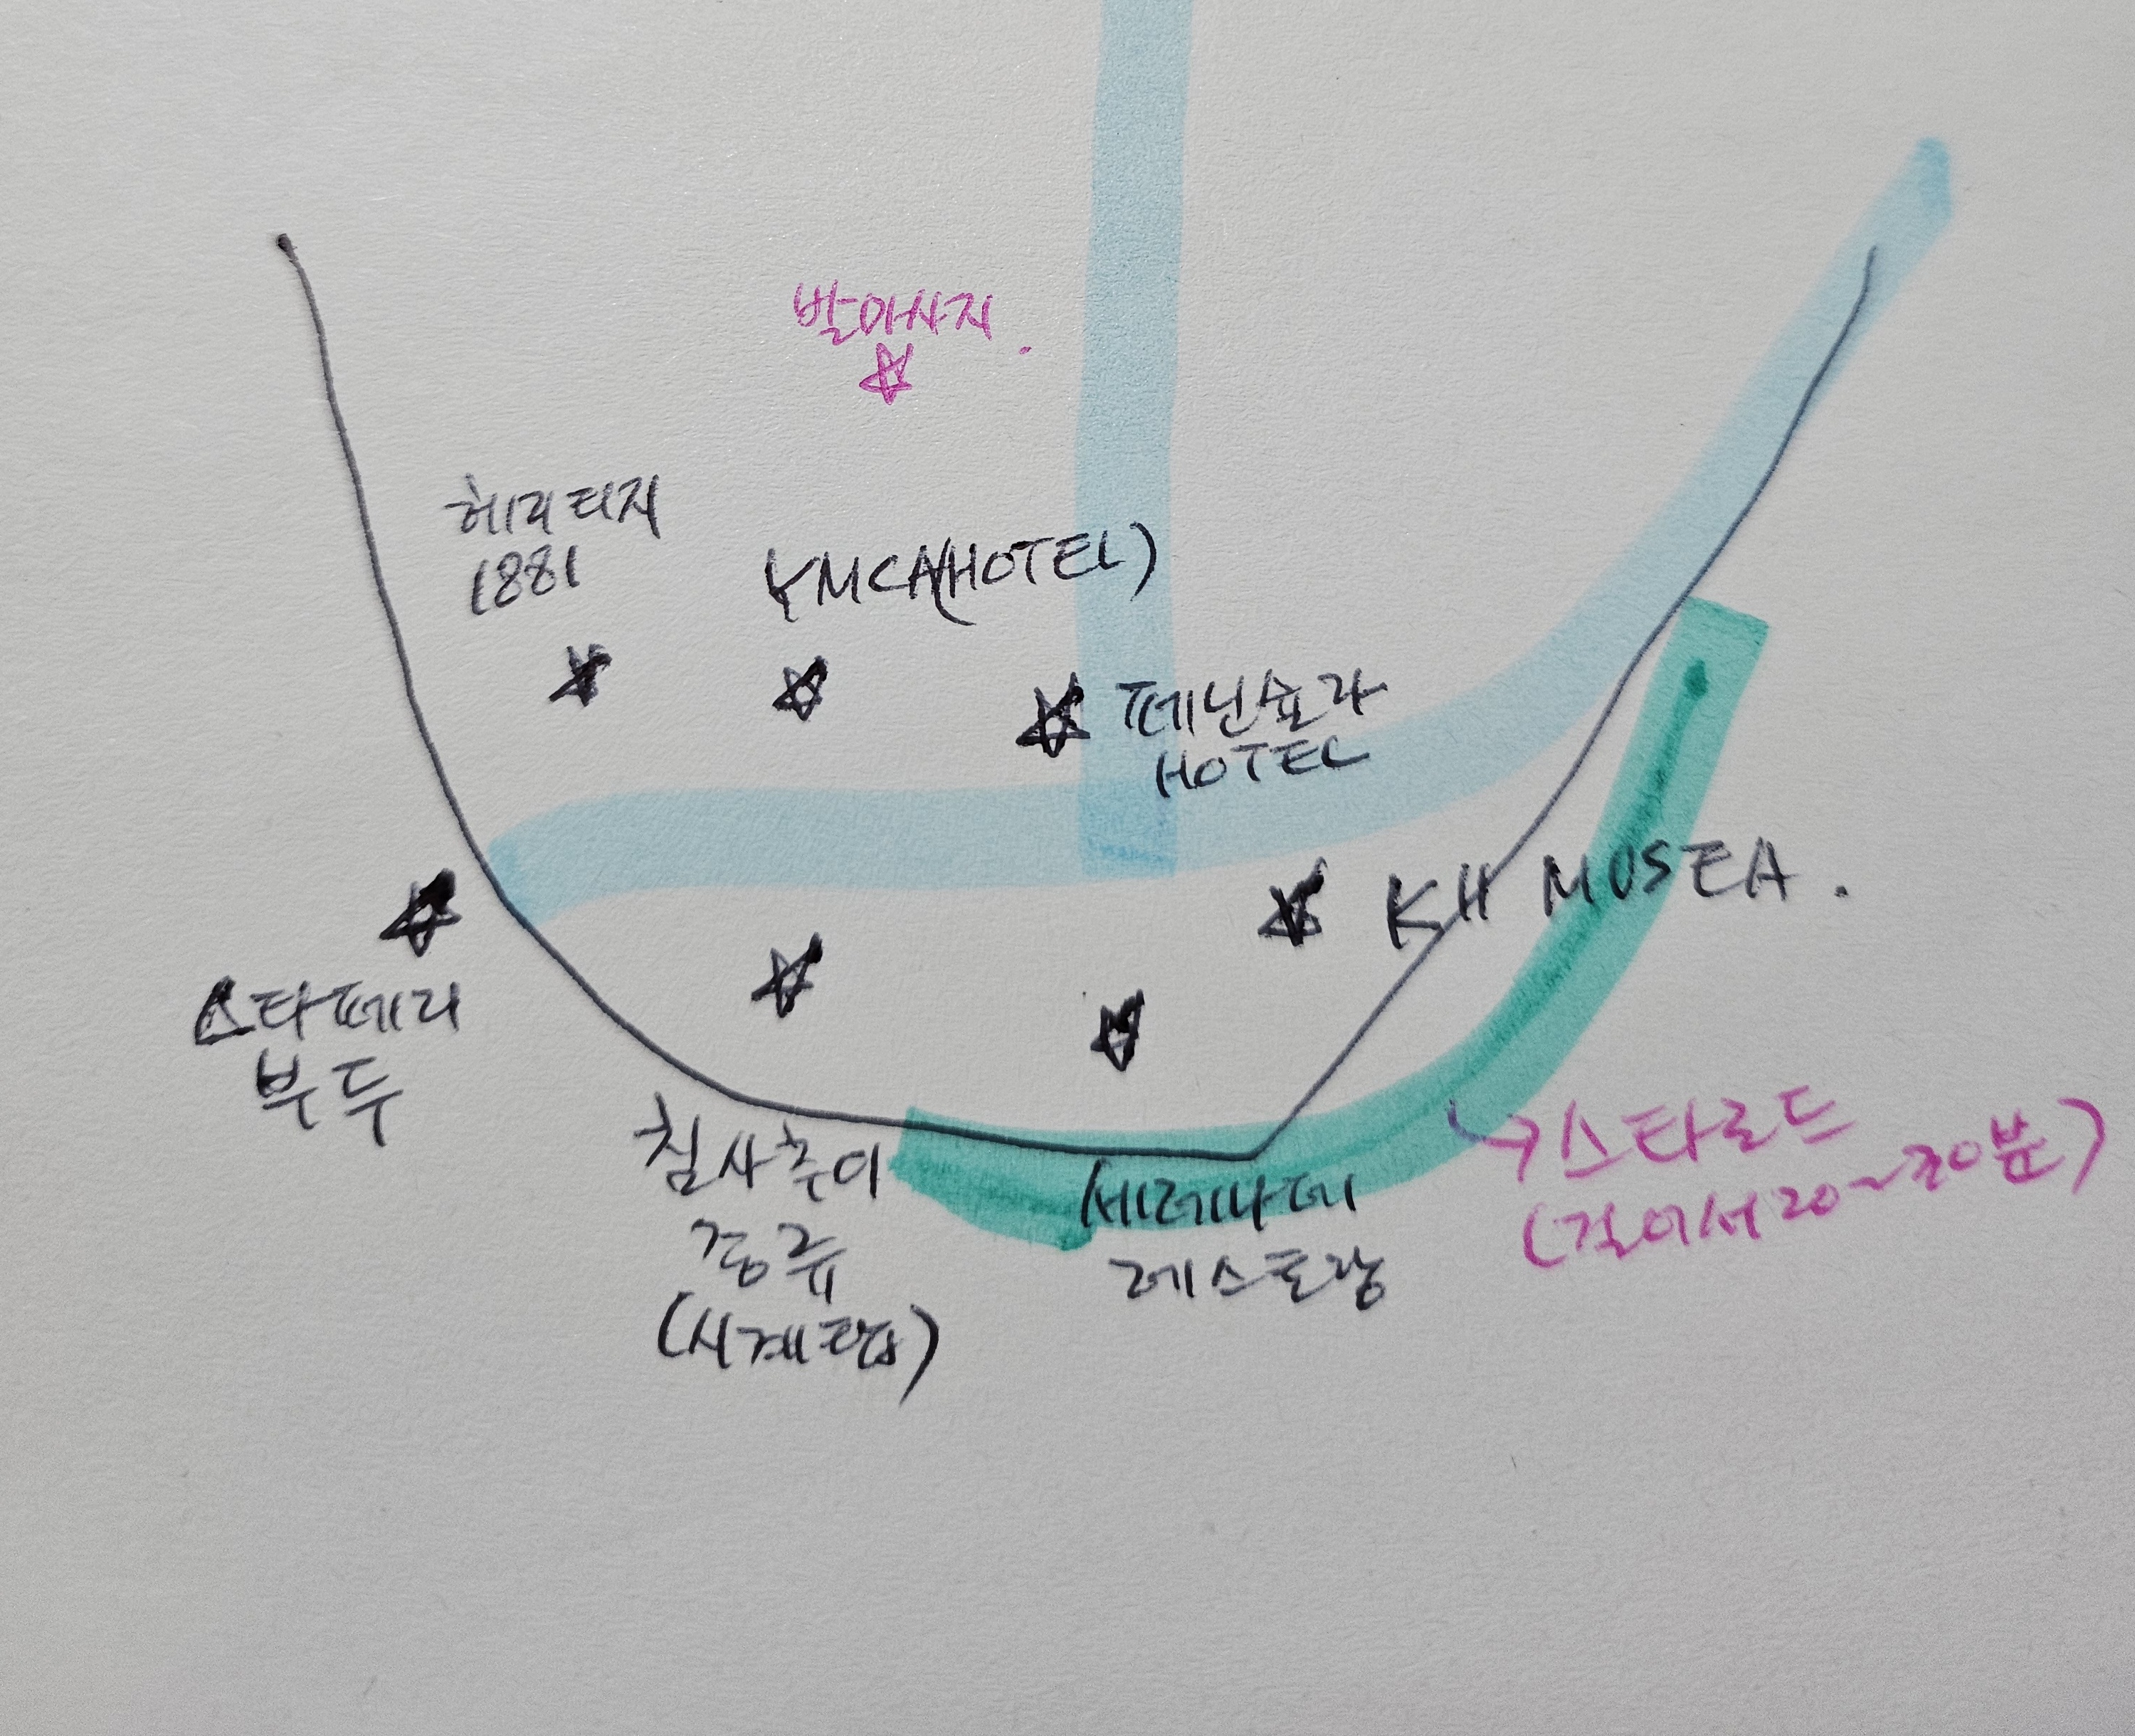 발마사지
헤리티지
1881
YMCA(HOTEL)
페닌슐라
HOTEL
KH MUSEA.
스타페리
부두
침사추이
종루
(시계탑)
세레나데
레스토랑
→스타로드
(걸어서 20~30분)